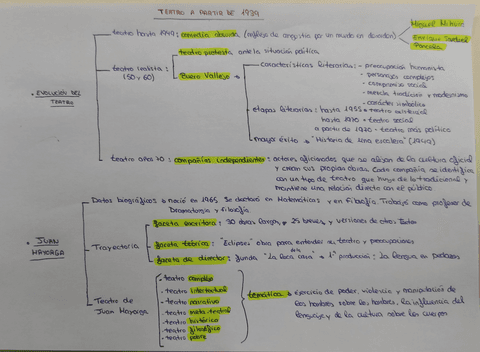 TEATRO A PARTIR DE 1939
teatro hasta 1949: comedia absurda (reflejo de angustia por un mundo en
Miguel Mihura
Enrique Jardiel
Poncela
teatro realista : teatro protesta ante la situación política
(50 y 60)
Buero Vallejo
características literarias: - preocupación humanista
- personajes complejos
- compromiso social
- mezcla tradición y modernismo
- carácter simbólico
etapas literarias: hasta 1955 teatro existencial
hasta 1970 - teatro social
a partir de 1970 - teatro más político
mayor éxito "Historia de una escalera" (1949)
• EVOLUCIÓN DEL
TEATRO
teatro años 70: compañías independientes: actores aficionados que se alejan de la cultura oficial
y crean sus propias obras. Cada compañía se identifica
con un tipo de teatro que huye de lo tradicional y
mantiene una relación directa con el público
Datos biográficos: nació en 1965. Se doctoró en Matemáticas y en Filosofía. Trabajó como profesor de
Dramaturgia y filosofía
• JUAN
MAYORGA
Trayectoria
faceta escritora: 30 obras largas, 25 breves, y versiones de otros textos
faceta teórica: "Elipses" obra para entender su teatro y preocupaciones
faceta de director: funda "La loca de la casa" 1ª producción: La lengua en pedazos
Teatro de
Juan Mayorga
- teatro complejo
- teatro intelectual
- teatro narrativo
- teatro meta-teatral
- teatro histórico
- teatro filosófico
- teatro pobre
temática ejercicio de poder, violencia y manipulación de
los hombres sobre los hombres, la influencia del
lenguaje y de la cultura sobre los cuerpos